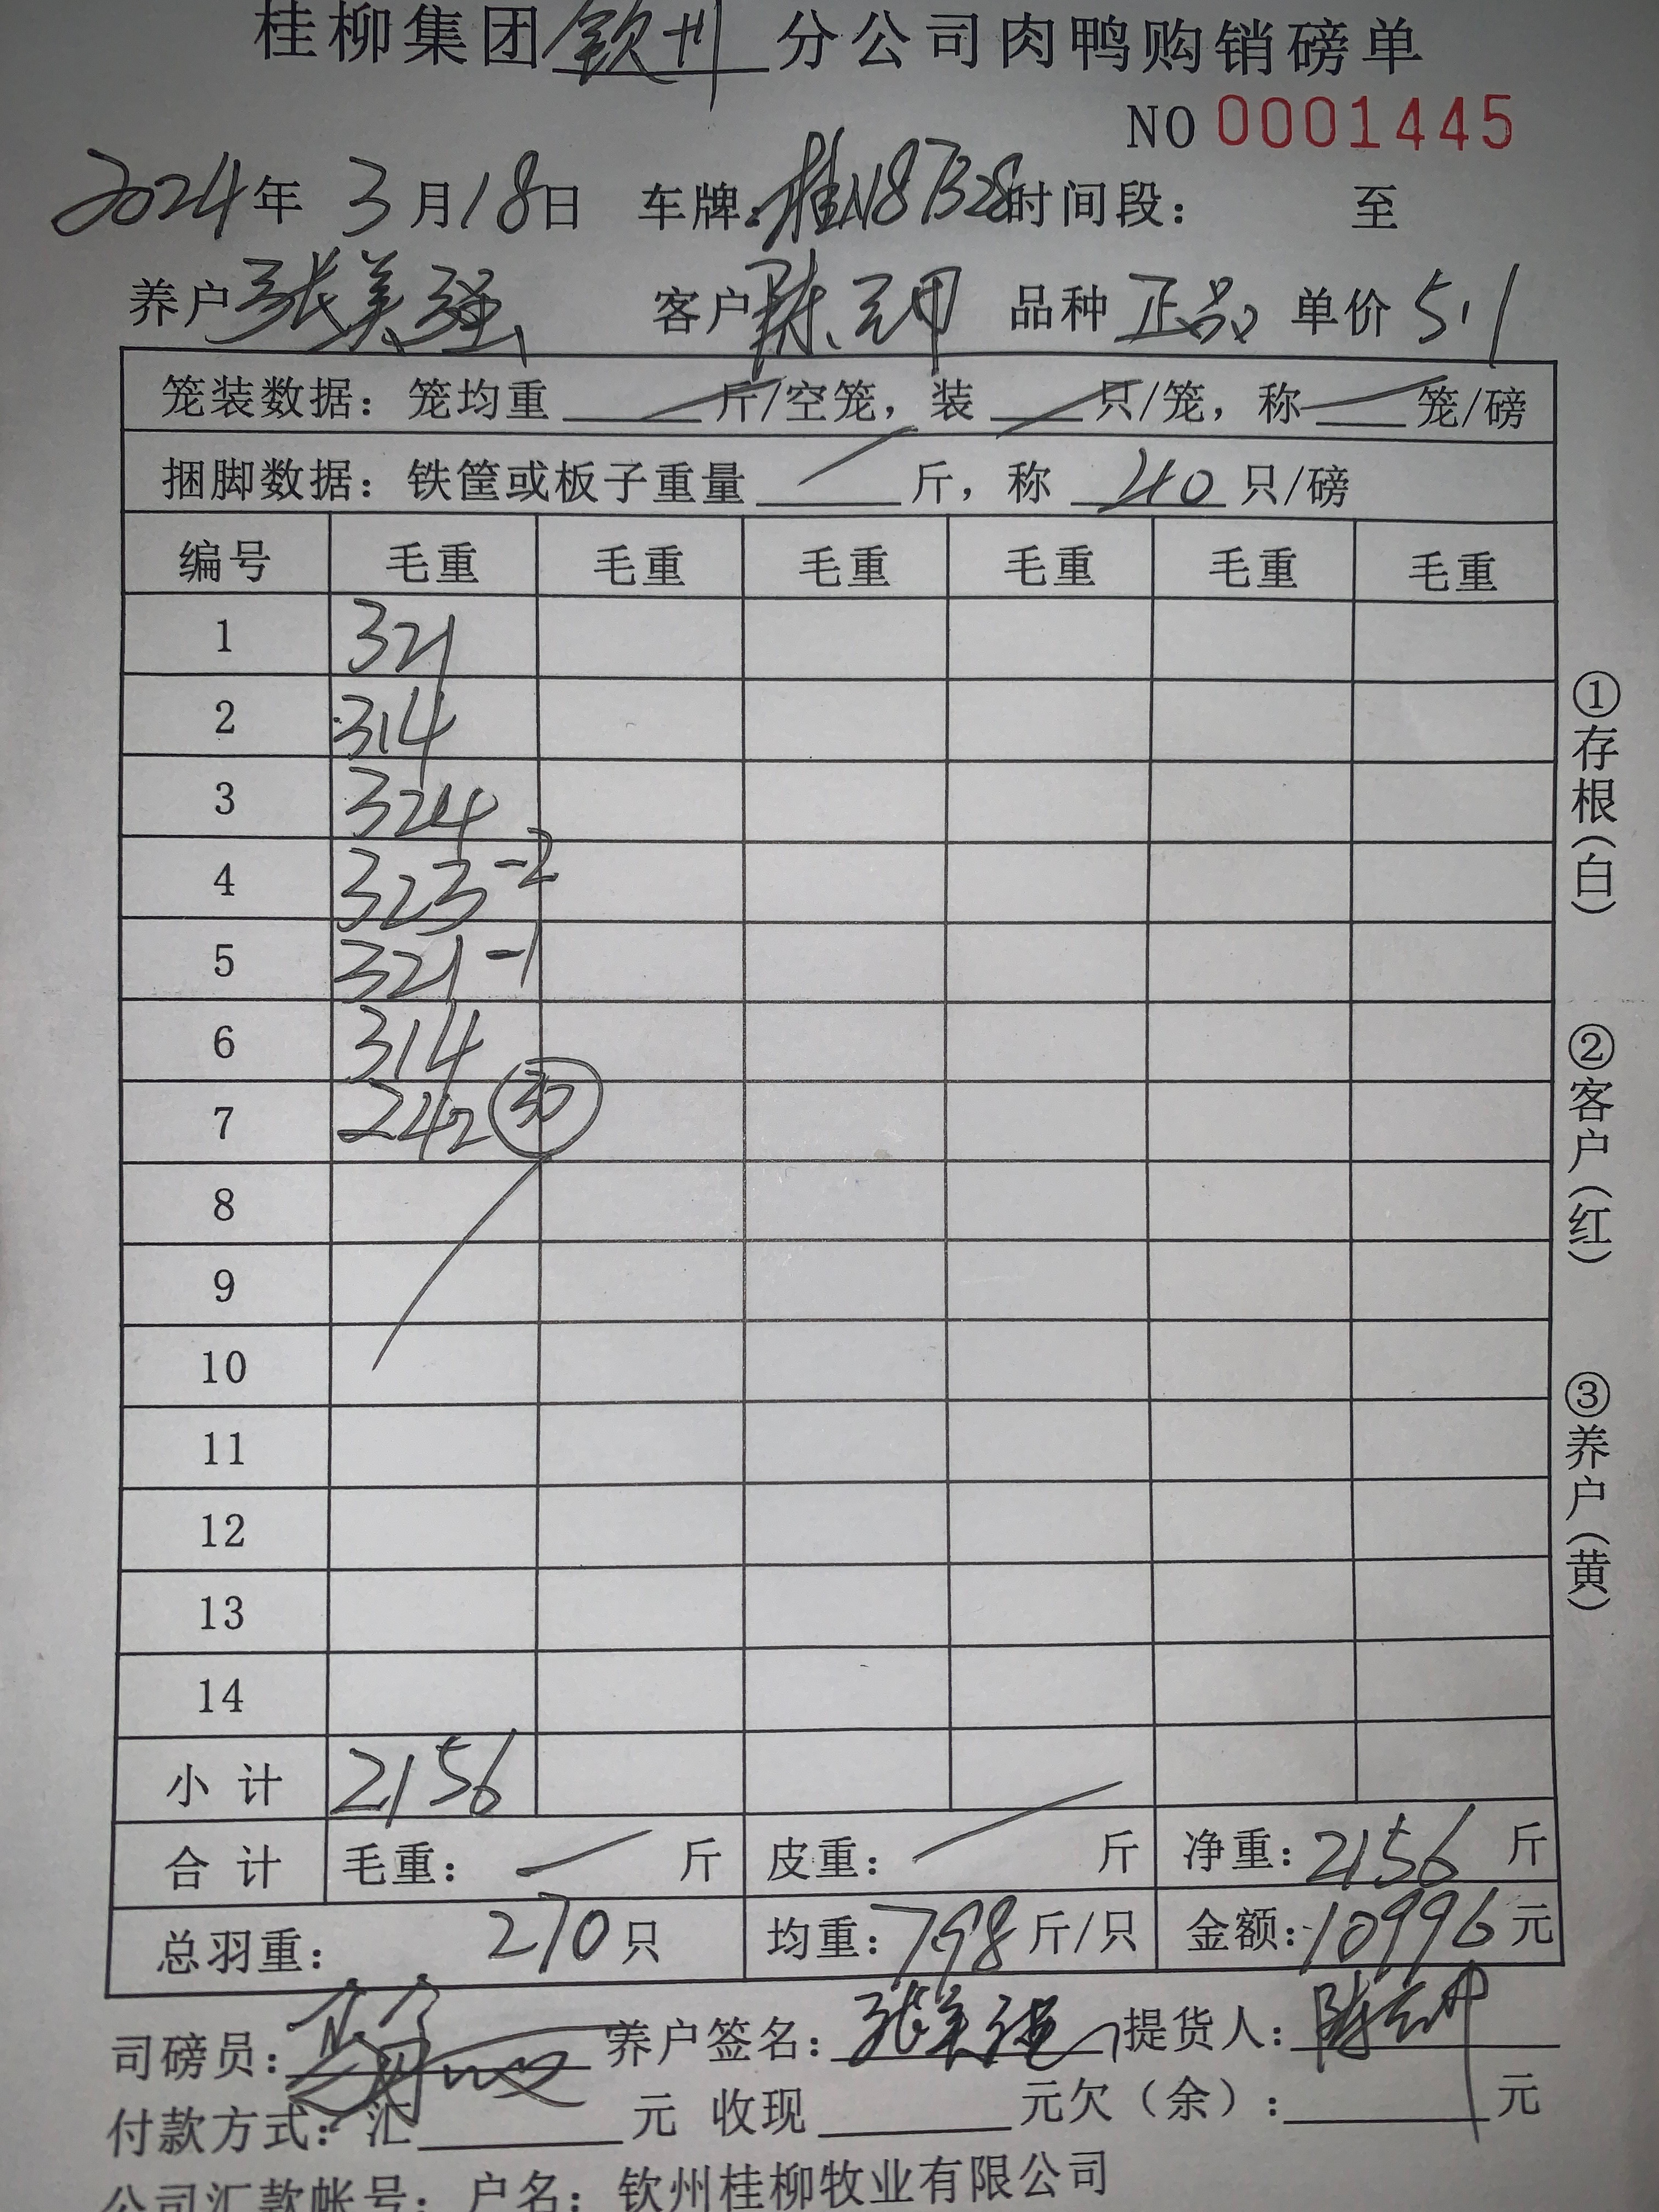 桂柳集团钦州分公司肉鸭购销磅单
NO 0001445
2024年 3月18日 车牌:桂N87B28时间段: 至
养户张美强 客户陈 品种 正品 单价 5.1
笼装数据: 笼均重 斤/空笼, 装 只/笼, 称 笼/磅
捆脚数据: 铁筐或板子重量 斤, 称 40 只/磅
编号 毛重 毛重 毛重 毛重 毛重 毛重
1 321
2 314
3 324
4 323-2
5 321-1
6 314
7 242 30
8
9
10
11
12
13
14
小 计 2156
合 计 毛重: 斤 皮重: 斤 净重: 2156 斤
总羽重: 270只 均重: 7.98斤/只 金额: 10996元
司磅员: 养户签名: 张美强 提货人: 陈
付款方式: 汇 元 收现 元欠(余): 元
公司汇款帐号: 户名: 钦州桂柳牧业有限公司
①存根(白)
②客户(红)
③养户(黄)